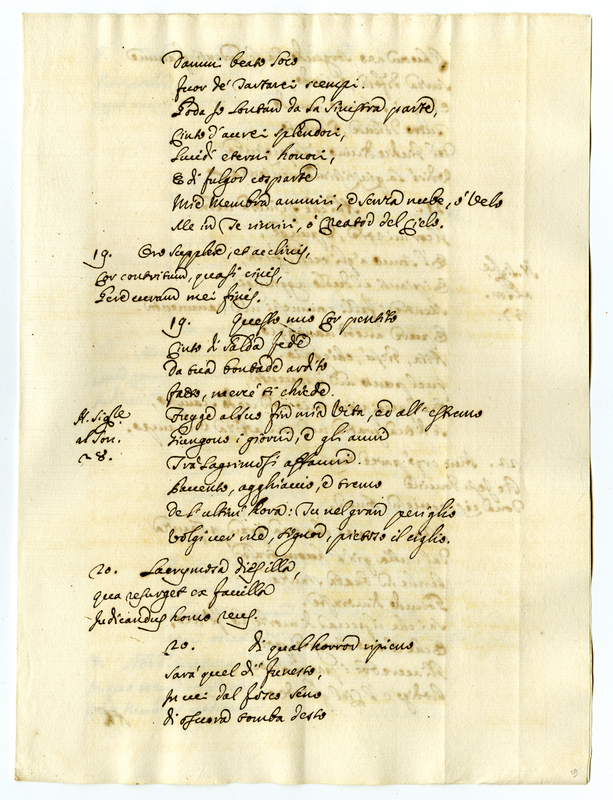 Dammi beato loco
fuor de' Tartarei scempi.
Goda so lontan da la sinistra parte,
Cinto d'aurei splendori,
Lucidi eterni honori,
E di fulgor cosparte
Mie membra ammiri, e senza nube, ó velo
Me in Te rimiri, ó Creator del Cielo.
19. Oro supplex, et acclinis,
Cor contritum, quasi cinis,
Gere curam mei finis.
19. Questo mio Cor pentito
Cinto di salda fede
Da tua bontade ardito
fatto, mercé ti chiede.
Fugge al suo fin mia Vita, ed all'estremo
A. Sig.le
al Son.
28.
Giungono i giorni, e gli anni
Tra' Lagrimosi affanni.
Pavento, agghiaccio, e tremo
de l'ultim'hora: Tu nel gran periglio
Volgi ver me, Signor, pietoso il ciglio.
20. Lacrymosa dies illa,
qua resurget ex favilla
Judicandus homo reus.
20. di qual horror ripieno
sará quel dì funesto,
In cui dal fosco seno
di oscura tomba desto